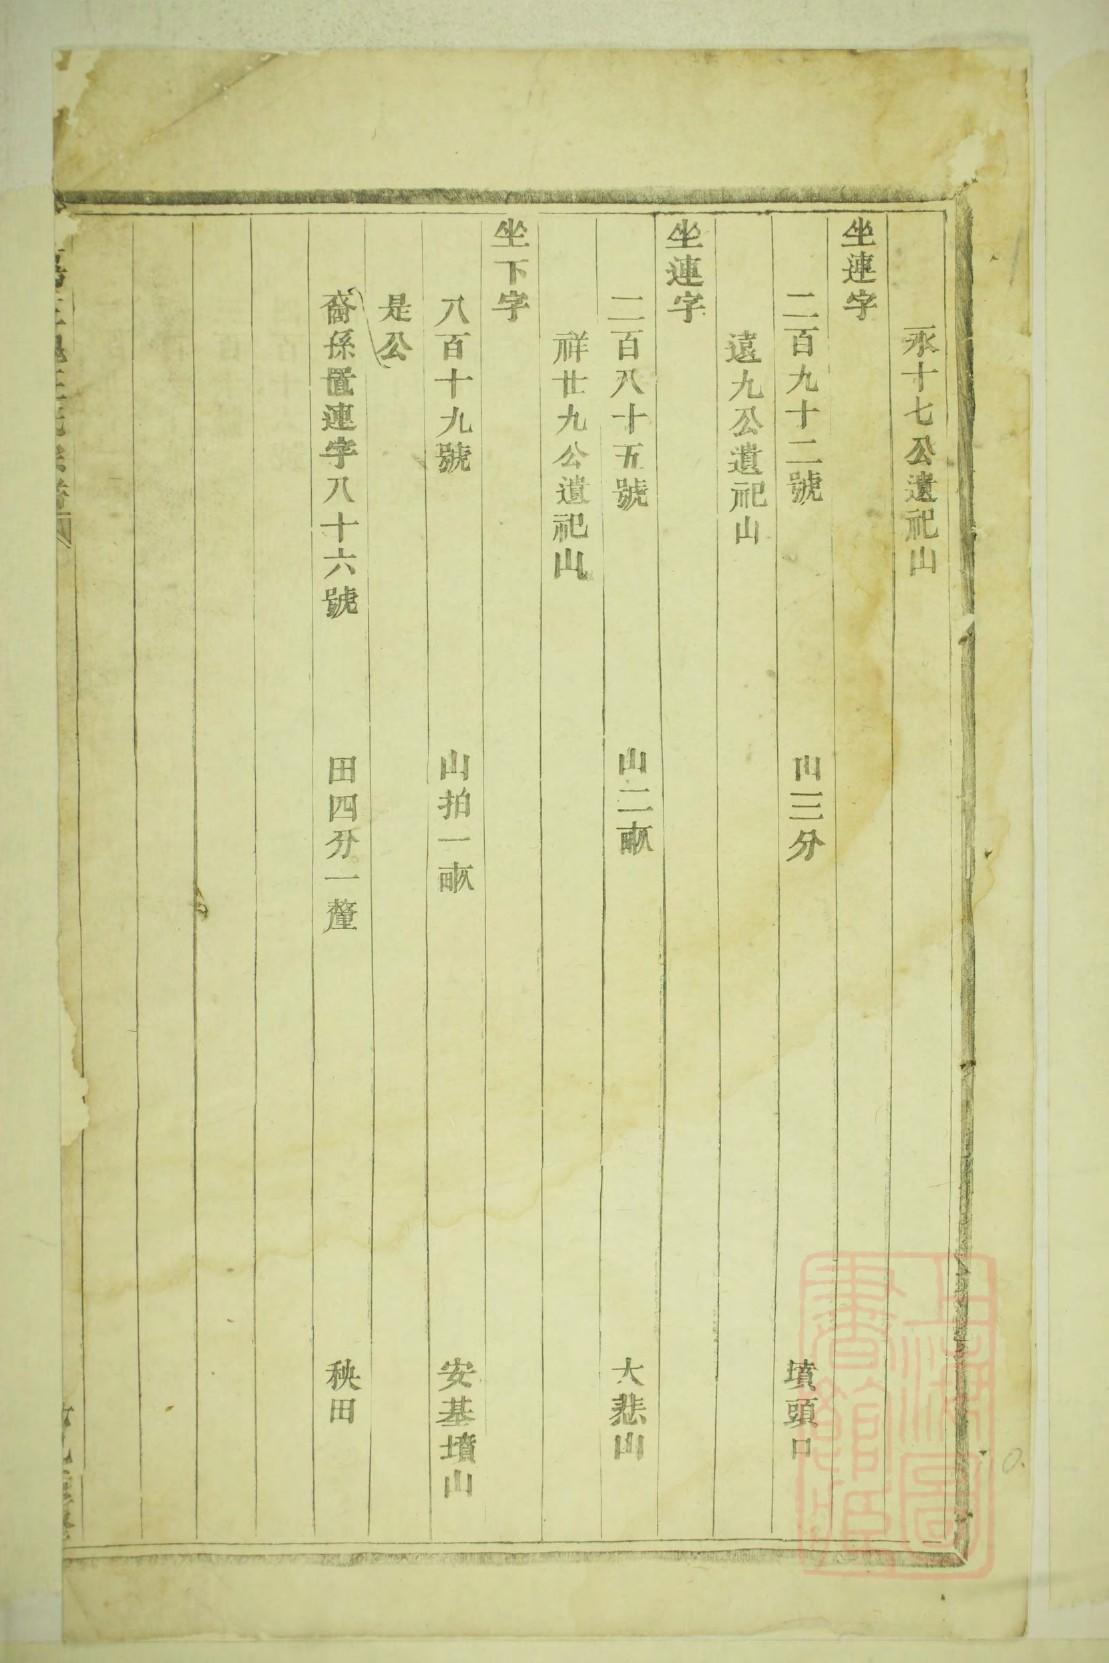 永十七公遺祀山
坐連字
二百九十二號 山三分 墳頭口
遠九公遺祀山
坐連字
二百八十五號 山二畝 大悲山
祥廿九公遺祀山
坐下字
八百十九號 山拍一畝 安基墳山
是公
裔孫置連字八十六號 田四分一釐 秧田
上海圖
書館藏